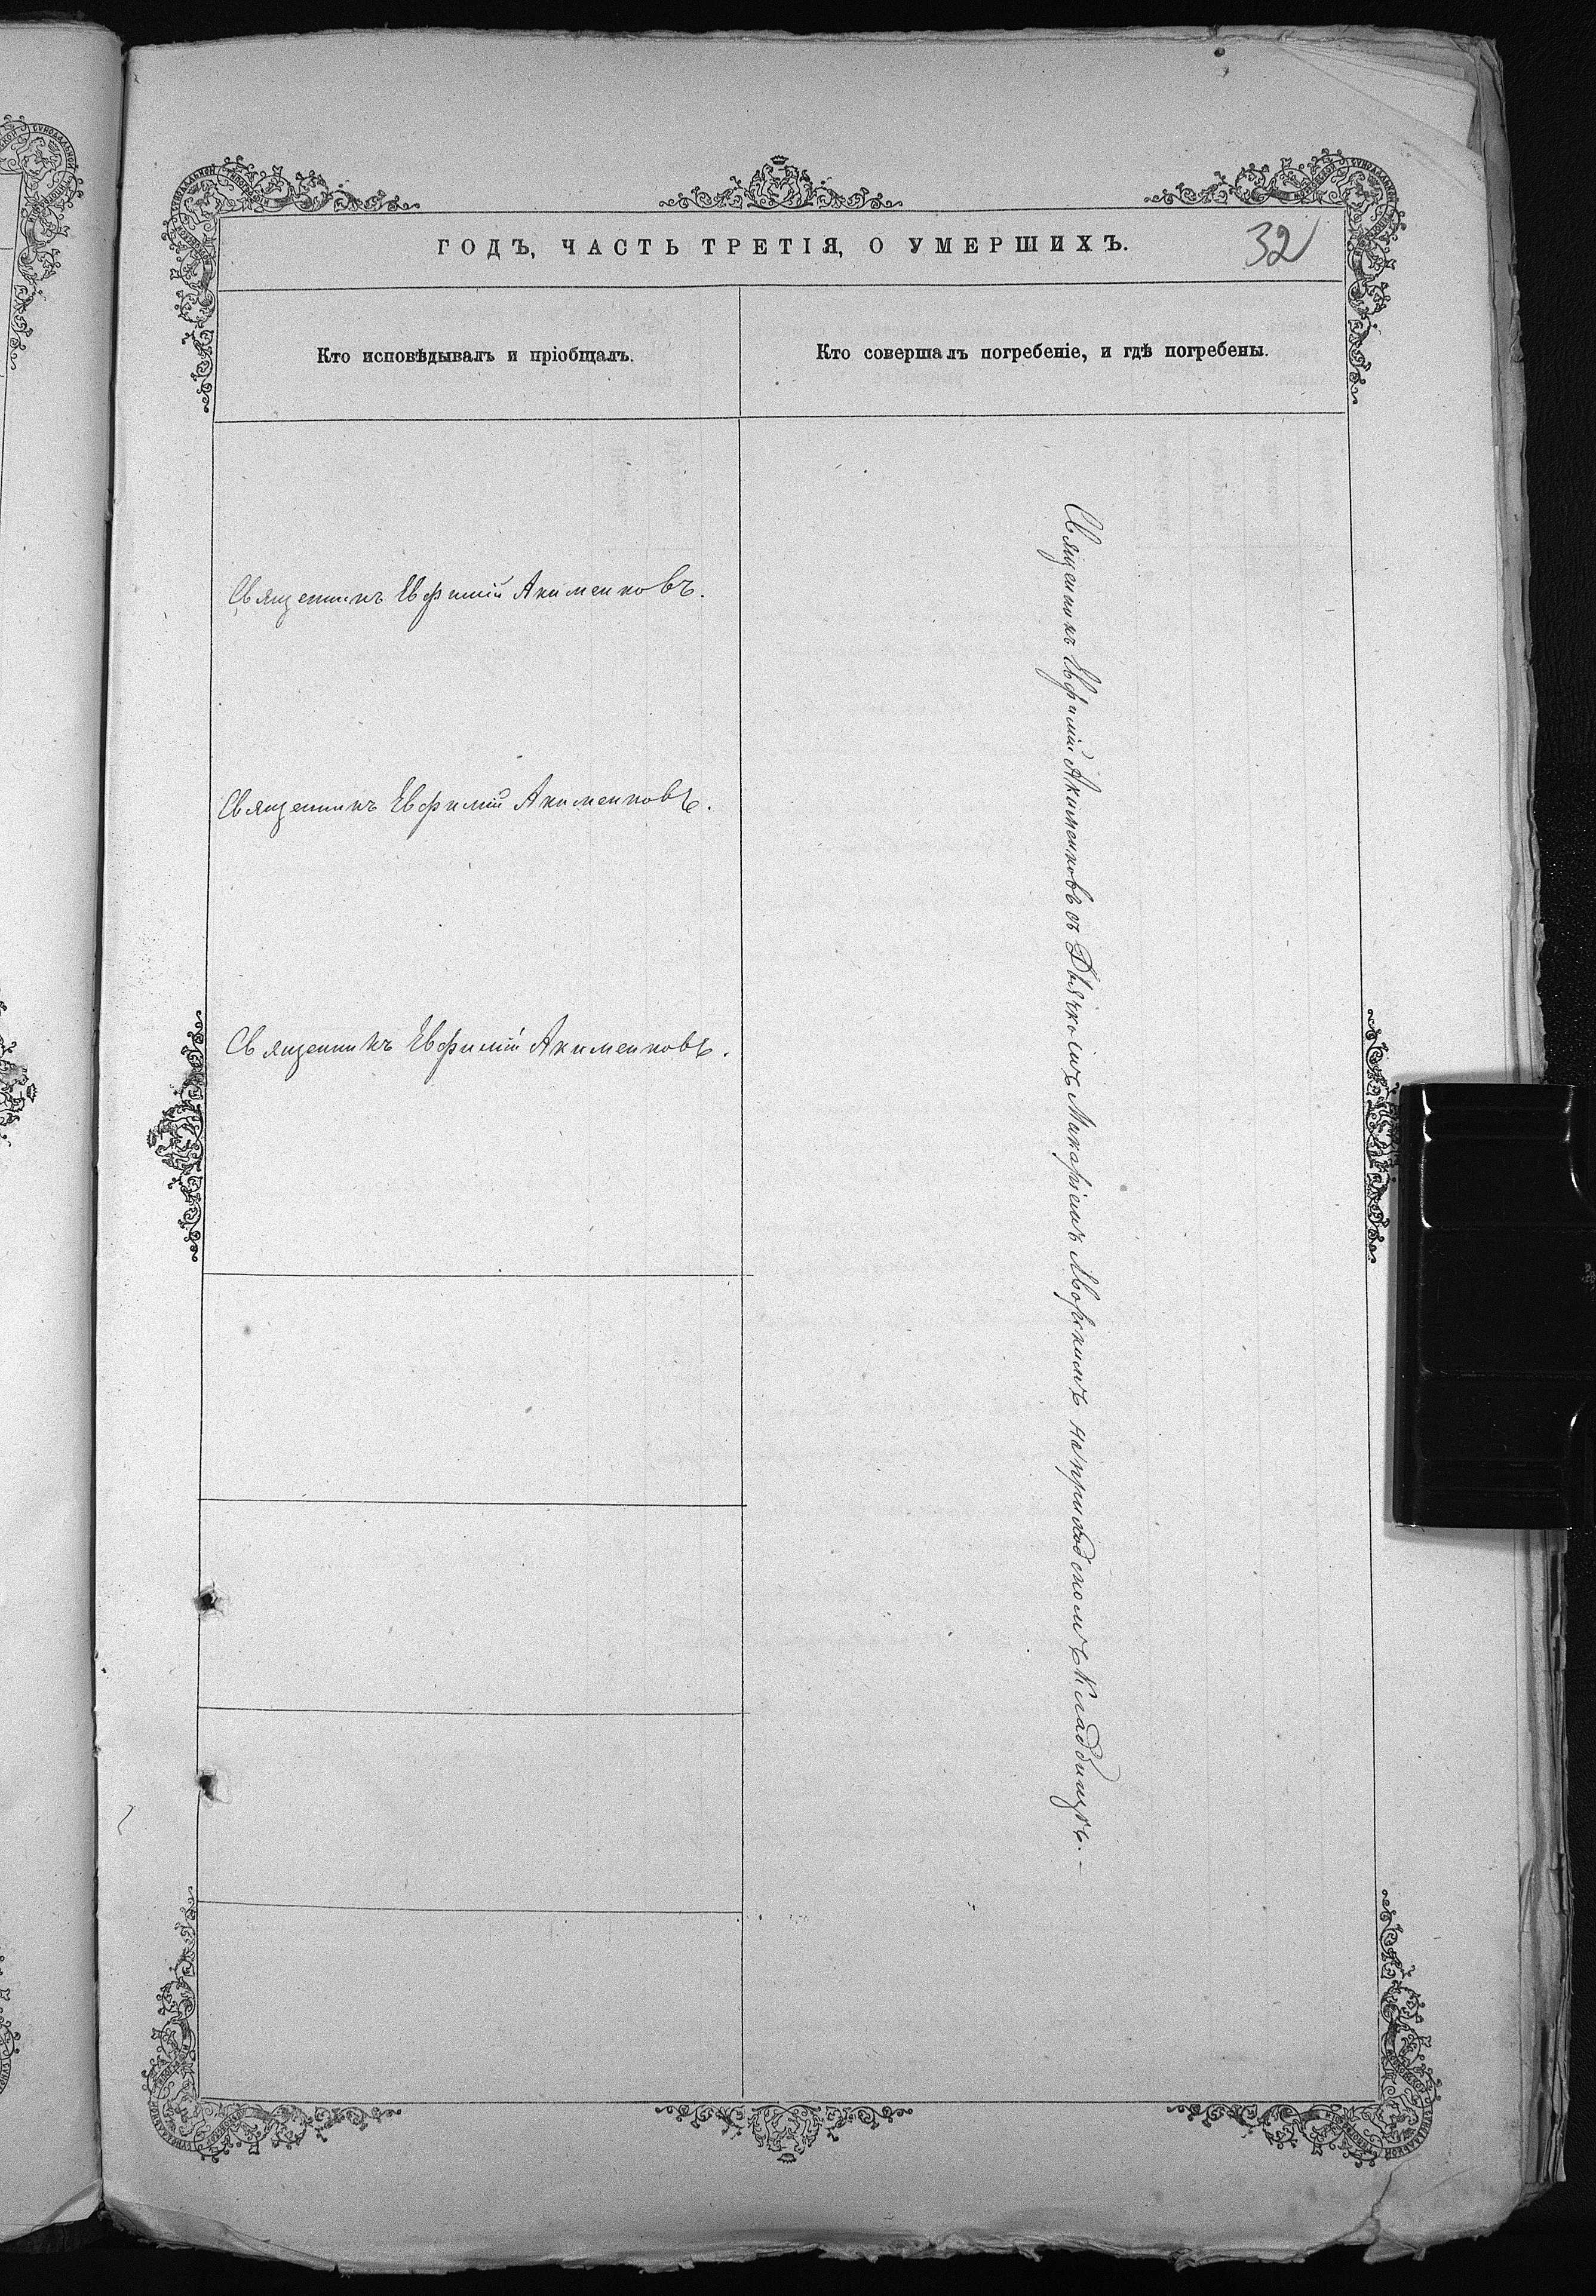 ГОДЪ, ЧАСТЬ ТРЕТІЯ, О УМЕРШИХЪ.
32
Кто исповѣдывалъ и пріобщалъ.
Кто совершалъ погребеніе, и гдѣ погребены.
Священникъ Евфимій Акименковъ.
Священникъ Евфимій Акименковъ.
Священникъ Евфимій Акименковъ.
Священникъ Евфимій Акименковъ съ Дьячкомъ Макаріемъ Яворскимъ на приходскомъ Кладбищѣ. –